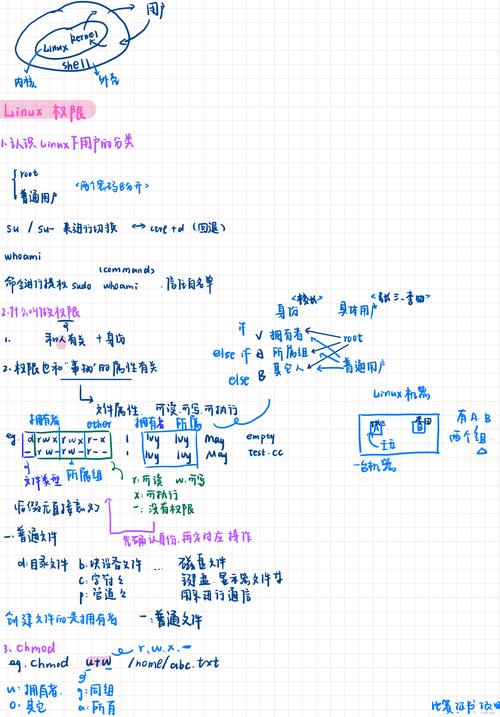 用户
Linux kernel
shell
内核 外壳
Linux 权限
1.认识 Linux下用户的分类
root
普通用户
<两个密码分开>
su / su- 来进行切换 ↔ ctrl+d (回退)
whoami
(command)
命令进行提权 sudo whoami 信任白名单
2.什么叫做权限
1. 和人有关 + 身份
2. 权限也和"事物"的属性有关
文件属性. 可读.可写.可执行
<校长> <张三.李四>
身份 具体用户
if 拥有者 root
else if 所属组
else 其它人 普通用户
Linux 机器
A B
有A.B
两个组
一台机器
拥有者 other 拥有者 所属
eg. d rwx rwx r-x 1 lvy lvy May empty
- rw- rw- r-- 1 lvy lvy May test.cc
文件类型 所属组
r:可读 w:可写
x:可执行
-:没有权限
先确认身份,再来对应操作
-:普通文件
d:目录文件 b:块设备文件 ... 磁盘文件
c:字符 键盘.显示器文件
p:管道 用来进行通信
创建文件的是拥有者 -:普通文件
3. chmod
r.w.x.-
eg. chmod u+w /home/abc.txt
u:拥有者. g:同组
o:其它 a:所有